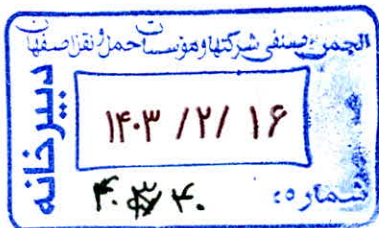 انجمن صنفی شرکتها و مؤسسات حمل و نقل اصفهان
دبیرخانه
۱۴۰۳ /۲/ ۱۶
شماره: